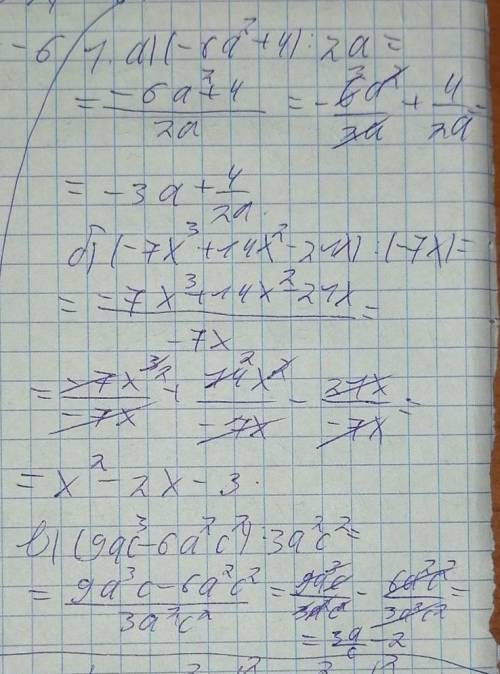 - 6
1. а) (-6a² + 4) : 2a =
= \frac{-6a² + 4}{2a} = -\frac{6a²}{2a} + \frac{4}{2a} =
= -3a + \frac{4}{2a}.
б) (-7x³ + 14x² - 21x) : (-7x) =
= \frac{-7x³ + 14x² - 21x}{-7x} =
= \frac{-7x³}{-7x} + \frac{14x²}{-7x} - \frac{21x}{-7x} =
= x² - 2x - 3.
в) (9ac³ - 6a²c²) : 3a²c² =
= \frac{9a³c - 6a²c²}{3a²c²} = \frac{9a³c}{3a²c²} - \frac{6a²c²}{3a²c²} =
= \frac{3a}{c} - 2